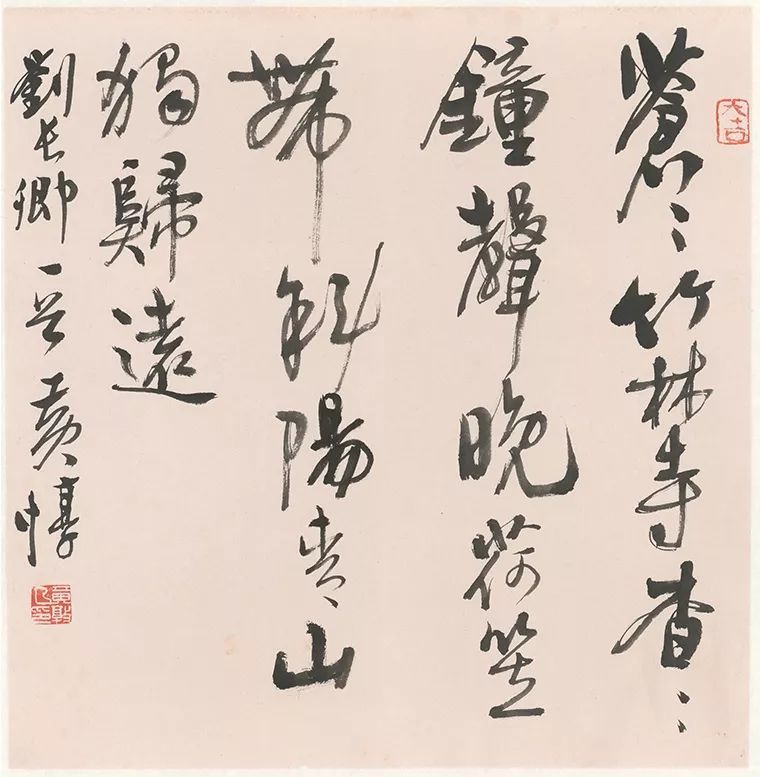 大吉
蒼〻竹林寺杳〻
鐘聲晚荷笠
帶斜陽青山
獨歸遠
劉長卿一首黃惇